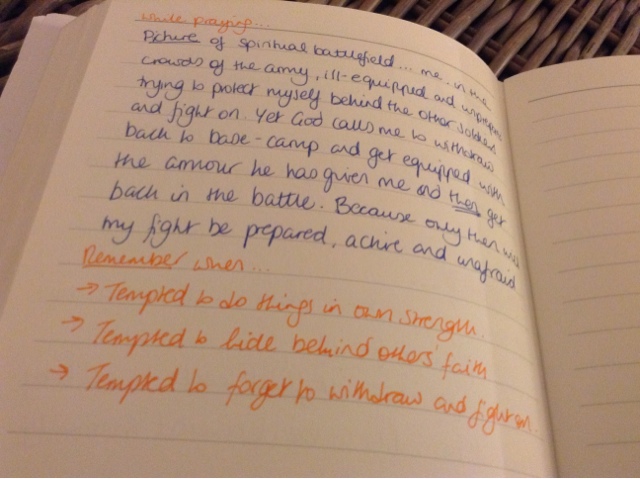 while praying...
Picture of spiritual battlefield... me in the
crowds of the army, ill-equipped and unprepared
trying to protect myself behind the other soldiers
and fight on. Yet God calls me to withdraw
back to base-camp and get equipped with
the armour he has given me and then get
back in the battle. Because only then will
my fight be prepared, active and unafraid
Remember when...
→ Tempted to do things in own strength.
→ Tempted to hide behind others' faith
→ Tempted to forget to withdraw and fight on.